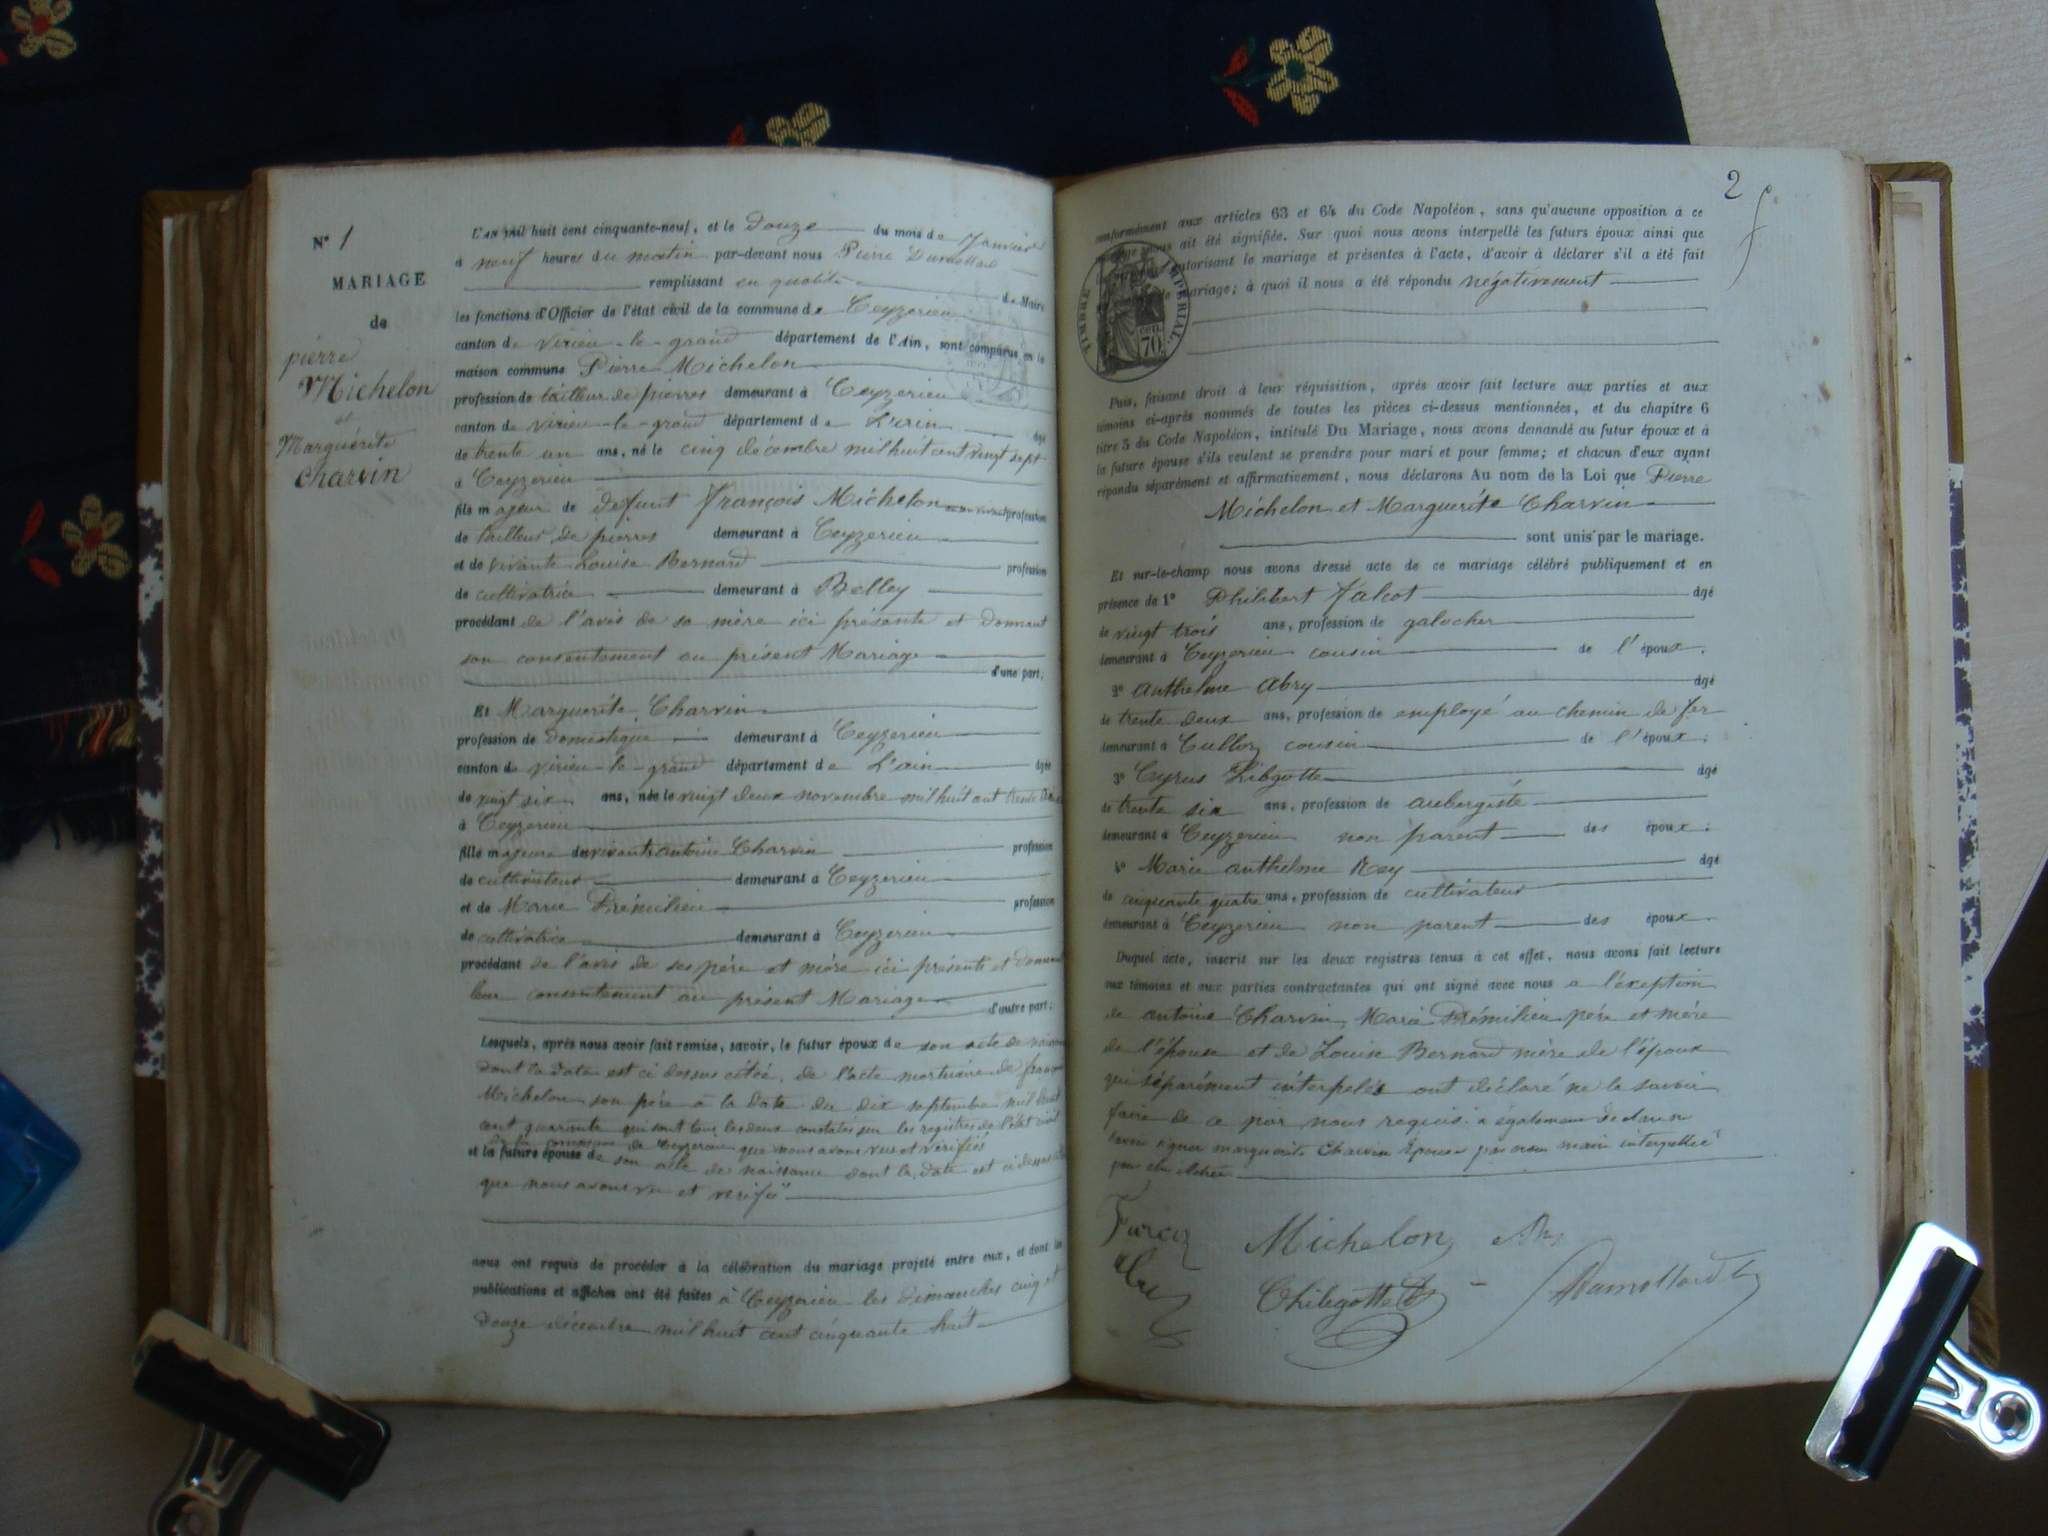 N° 1
MARIAGE
de
pierre
Michelon
et
Marguérite
charvin
L'an mil huit cent cinquante-neuf, et le Douze du mois de Janvier
à neuf heures du matin par-devant nous Pierre
remplissant en qualité de Maire
les fonctions d'Officier de l'état civil de la commune de Ceyzerieu
canton de virieu-le-grand département de l'Ain, sont comparus en la
maison commune Pierre Michelon
profession de tailleur de pierres demeurant à Ceyzerieu
canton de virieu-le-grand département de L'ain âgé
de trente un ans, né le cinq décembre mil huit cent vingt sept
à Ceyzerieu
fils majeur de defunt françois Michelon profession
de tailleur de pierres demeurant à Ceyzerieu
et de vivante Louise Bernard profession
de cultivatrice demeurant à Belley
procédant de l'avis de sa mère ici présente et donnant
son consentement au présent Mariage
d'une part;
Et Marguerite Charvin
profession de domestique demeurant à Ceyzerieu
canton de virieu-le-grand département de L'ain âgée
de vingt six ans, née le vingt deux novembre mil huit cent trente
à Ceyzerieu
fille majeure de vivants antoine Charvin profession
de cultivateur demeurant à Ceyzerieu
et de Marie Prémilieu profession
de cultivatrice demeurant à Ceyzerieu
procédant de l'avis de ses père et mère ici présents et donnant
leur consentement au présent Mariage
d'autre part;
Lesquels, après nous avoir fait remise, savoir, le futur époux de son acte de
dont la date est ci dessus citée, de l'acte mortuaire de
Michelon son père à la date du dix septembre mil huit
cent quarante qui sont tous les deux constatés sur les registres de l'état civil
de la commune de Ceyzerieu que nous avons vus et vérifiés
et la future épouse de son acte de naissance dont la date est ci dessus
que nous avons vu et vérifié
nous ont requis de procéder à la célébration du mariage projeté entre eux, et dont les
publications et affiches ont été faites à Ceyzerieu les dimanches cinq et
douze décembre mil huit cent cinquante huit
2
conformément aux articles 63 et 64 du Code Napoléon, sans qu'aucune opposition à ce
mariage nous ait été signifiée. Sur quoi nous avons interpellé les futurs époux ainsi que
autorisant le mariage et présentes à l'acte, d'avoir à déclarer s'il a été fait
mariage; à quoi il nous a été répondu négativement
TIMBRE IMPÉRIAL
70 CEN.
Puis, faisant droit à leur réquisition, après avoir fait lecture aux parties et aux
témoins ci-après nommés de toutes les pièces ci-dessus mentionnées, et du chapitre 6
titre 5 du Code Napoléon, intitulé Du Mariage, nous avons demandé au futur époux et à
la future épouse s'ils veulent se prendre pour mari et pour femme; et chacun d'eux ayant
répondu séparément et affirmativement, nous déclarons Au nom de la Loi que Pierre
Michelon et Marguérite Charvin
sont unis par le mariage.
Et sur-le-champ nous avons dressé acte de ce mariage célébré publiquement et en
présence de 1° Philibert falcot âgé
de vingt trois ans, profession de galocher
demeurant à Ceyzerieu cousin de l'époux.
2° Anthelme Abry âgé
de trente deux ans, profession de employé au chemin de fer
demeurant à Culloz cousin de l'époux.
3° Cyrus âgé
de trente six ans, profession de aubergiste
demeurant à Ceyzerieu non parent des époux.
4° Marie anthelme Rey âgé
de cinquante quatre ans, profession de cultivateur
demeurant à Ceyzerieu non parent des époux.
Duquel acte, inscrit sur les deux registres tenus à cet effet, nous avons fait lecture
aux témoins et aux parties contractantes qui ont signé avec nous a l'exeption
de antoine Charvin, Marie Prémilieu père et mère
de l'épouse et de Louise Bernard mère de l'époux
qui séparément interpelés ont déclaré ne le savoir
faire de ce par nous requis. a également declaré ne
savoir signer marguerite Charvin Epouse
Michelon